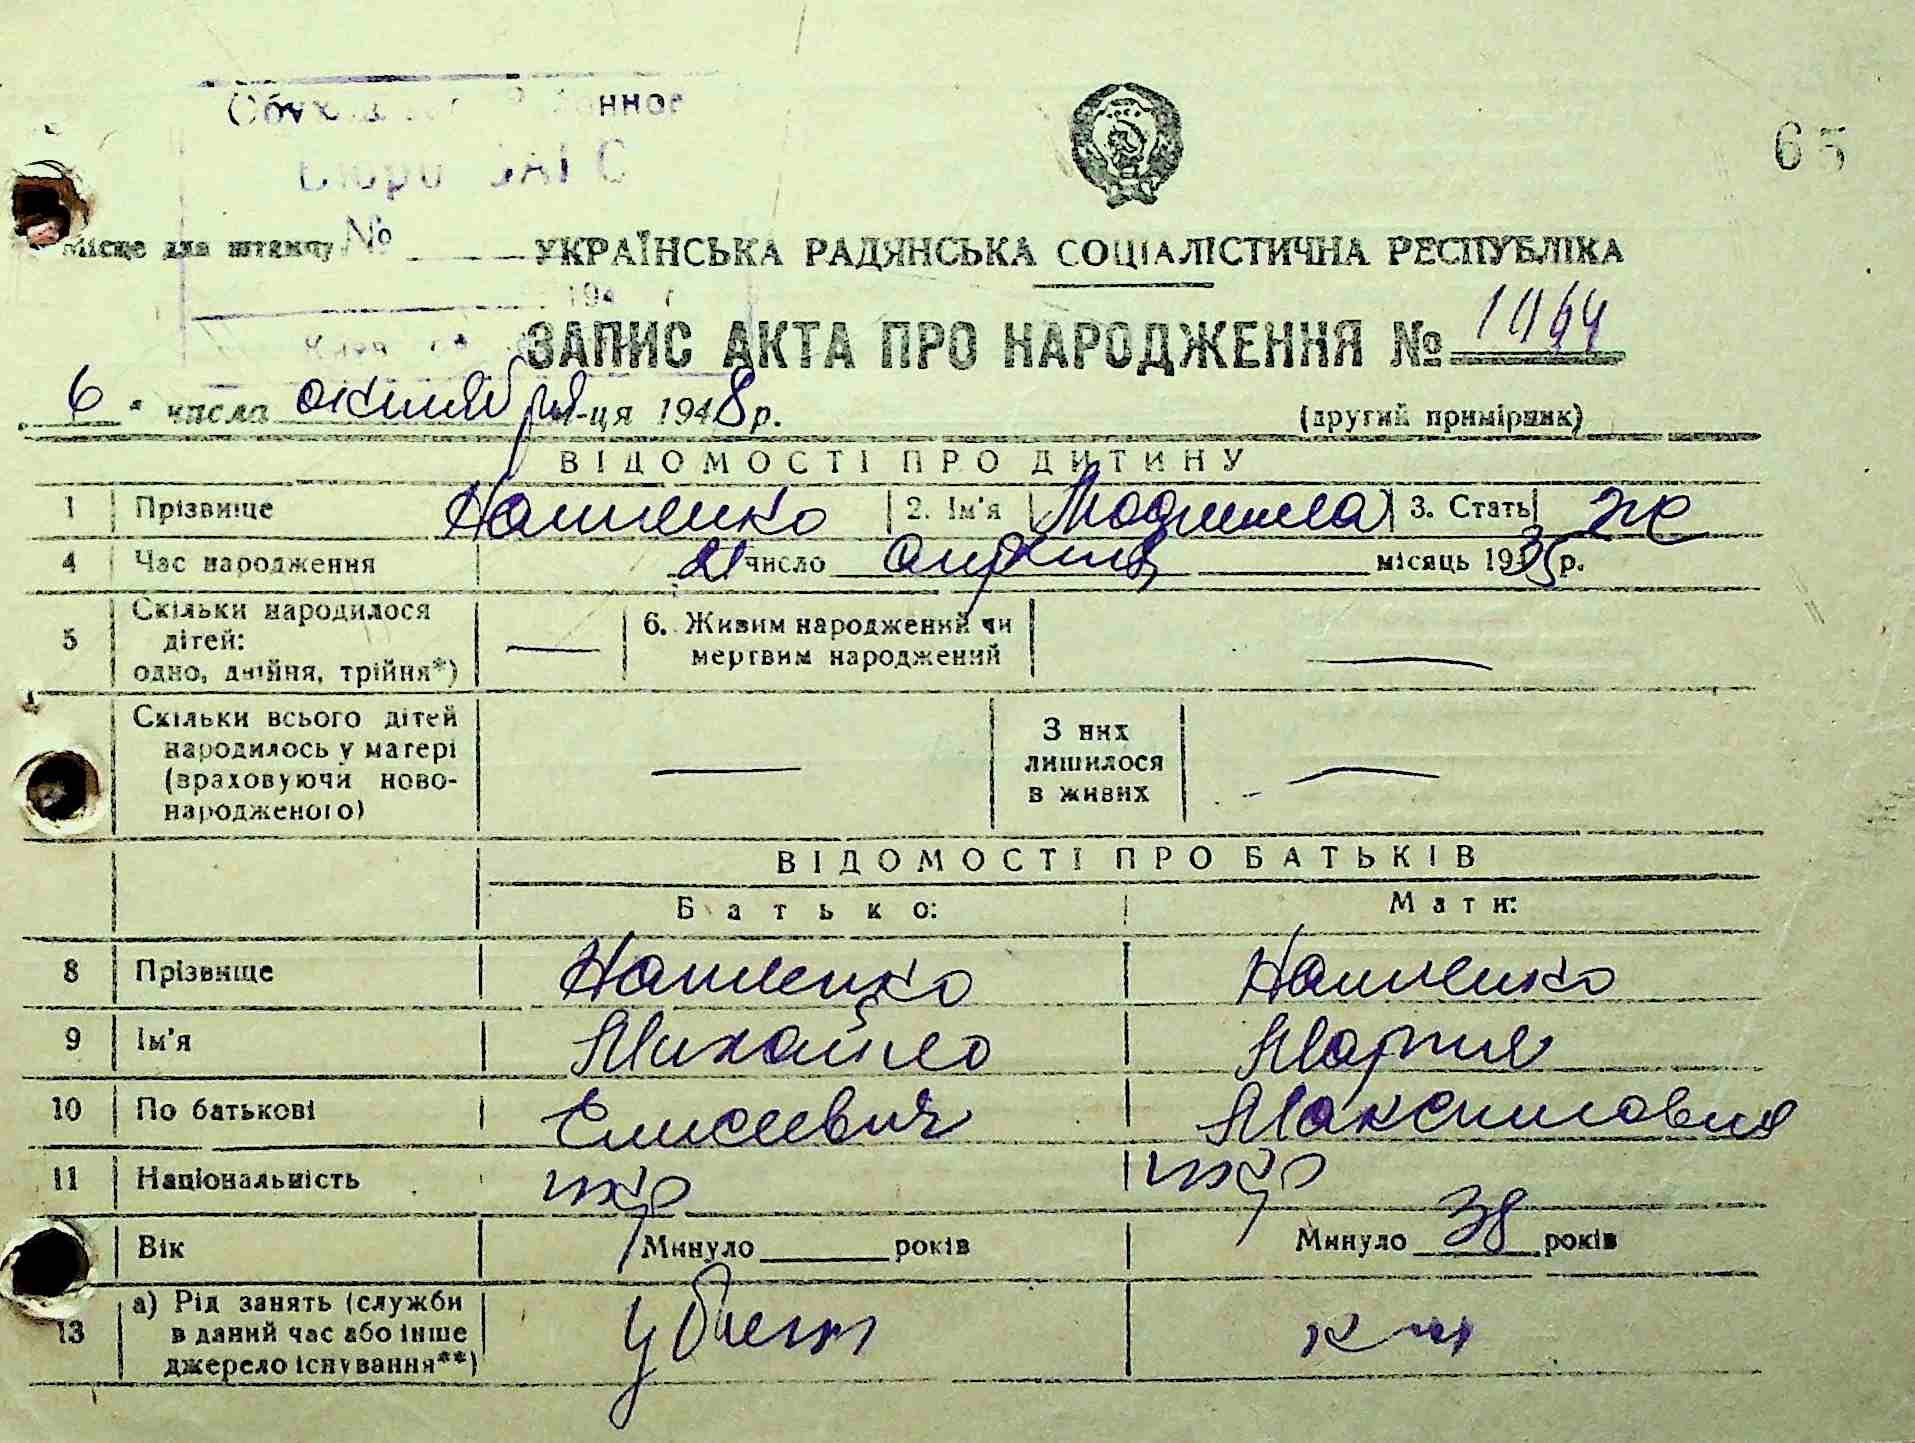 65
Бюро ЗАГС
Місце для штампу №
УКРАЇНСЬКА РАДЯНСЬКА СОЦІАЛІСТИЧНА РЕСПУБЛІКА
194 г
ЗАПИС АКТА ПРО НАРОДЖЕННЯ №
„6“ числа октября м-ця 1948 р. (другий примірник)
ВІДОМОСТІ ПРО ДИТИНУ
1 Прізвище 2. Ім'я Людмила 3. Стать ж
4 Час народження 21 число апреля місяць 1935 р.
5 Скільки народилося дітей: одно, двійня, трійня*) — 6. Живим народжений чи мертвим народжений —
Скільки всього дітей народилось у матері (враховуючи новонародженого) — З них лишилося в живих —
ВІДОМОСТІ ПРО БАТЬКІВ
Батько: Мати:
8 Прізвище
9 Ім'я Михайло Мария
10 По батькові Елисеевич Максимовна
11 Національність укр укр
Вік Минуло років Минуло 38 років
13 а) Рід занять (служби в даний час або інше джерело існування**) убит к-ца